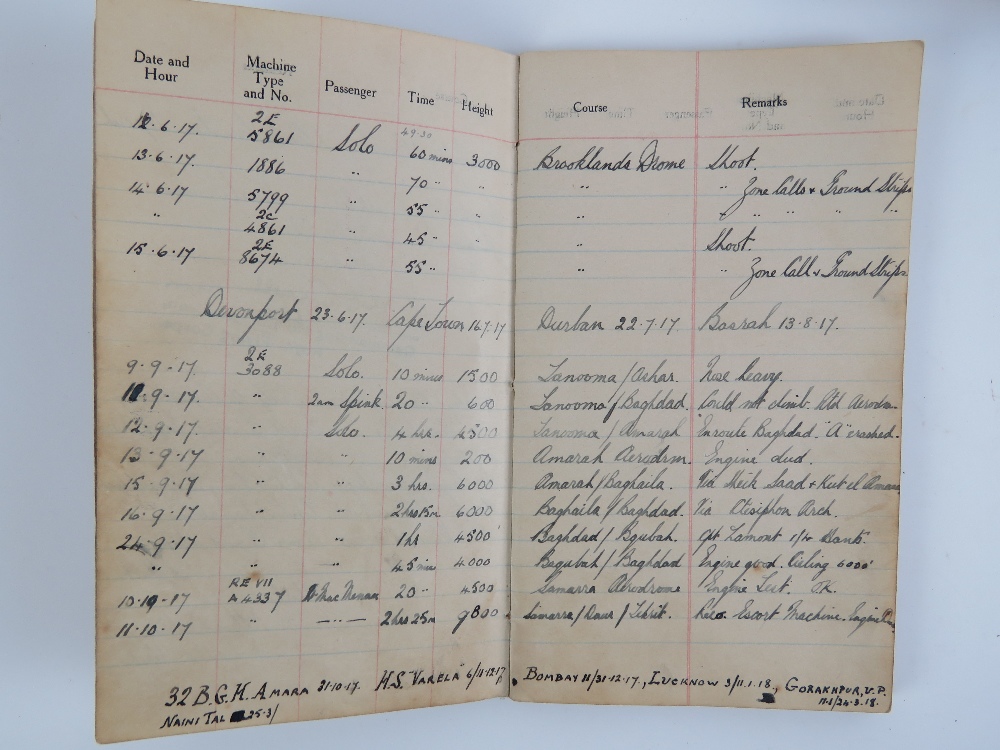 Date and Hour Machine Type and No. Passenger Time Height Course Remarks
12.6.17. 2E 5861 Solo 60 mins 3000 Brooklands Drome Shoot.
13.6.17. 1886 " 70 " " " " Zone Calls & Ground Strips
14.6.17 5799 " 55 " " " " " " " "
" 2c 4861 " 45 " " Shoot.
15.6.17 2E 8674 " 55 " " " Zone Call & Ground Strips.
Devonport 23.6.17. Cape Town 16.7.17 Durban 22.7.17. Basrah 13.8.17.
9.9.17. 2E 3088 Solo. 10 mins 1500 Tanooma / Ashar. Nose heavy.
11.9.17. " 2am Spink. 20 " 600 Tanooma / Baghdad. Could not climb. Rtd Aerodm.
12.9.17. " Solo. 4 hrs. 4500 Tanooma / Amarah Enroute Baghdad. "A" crashed.
13.9.17 " " 10 mins 200 Amarah Aerodrm. Engine dud.
15.9.17 " " 3 hrs. 6000 Amarah / Baghaila. Via Sheik Saad & Kut el Amara
16.9.17 " " 2 hrs 15m 6000 Baghaila / Baghdad. Via Ctisiphon Arch.
24.9.17 " " 1 hr 4500 Baghdad / Bqubah. Lamont
" " " 45 min 4000 Baqubah / Baghdad Engine good. Ceiling 6000'
10.10.17 RE VII A4337 20 " 4500 Samarra Aerodrome Engine Test. OK.
11.10.17 " 2 hrs 25m 9800 Samarra / Daur / Tekrit. Reco. Escort Machine. Engine
32 B.G.H. Amara 31.10.17. H.S. "Varela" 6/11.12.17 Bombay 11/31.12.17., Lucknow 3/11.1.18., Gorakhpur, U.P. 11.1/24.3.18.
Naini Tal 25.3/